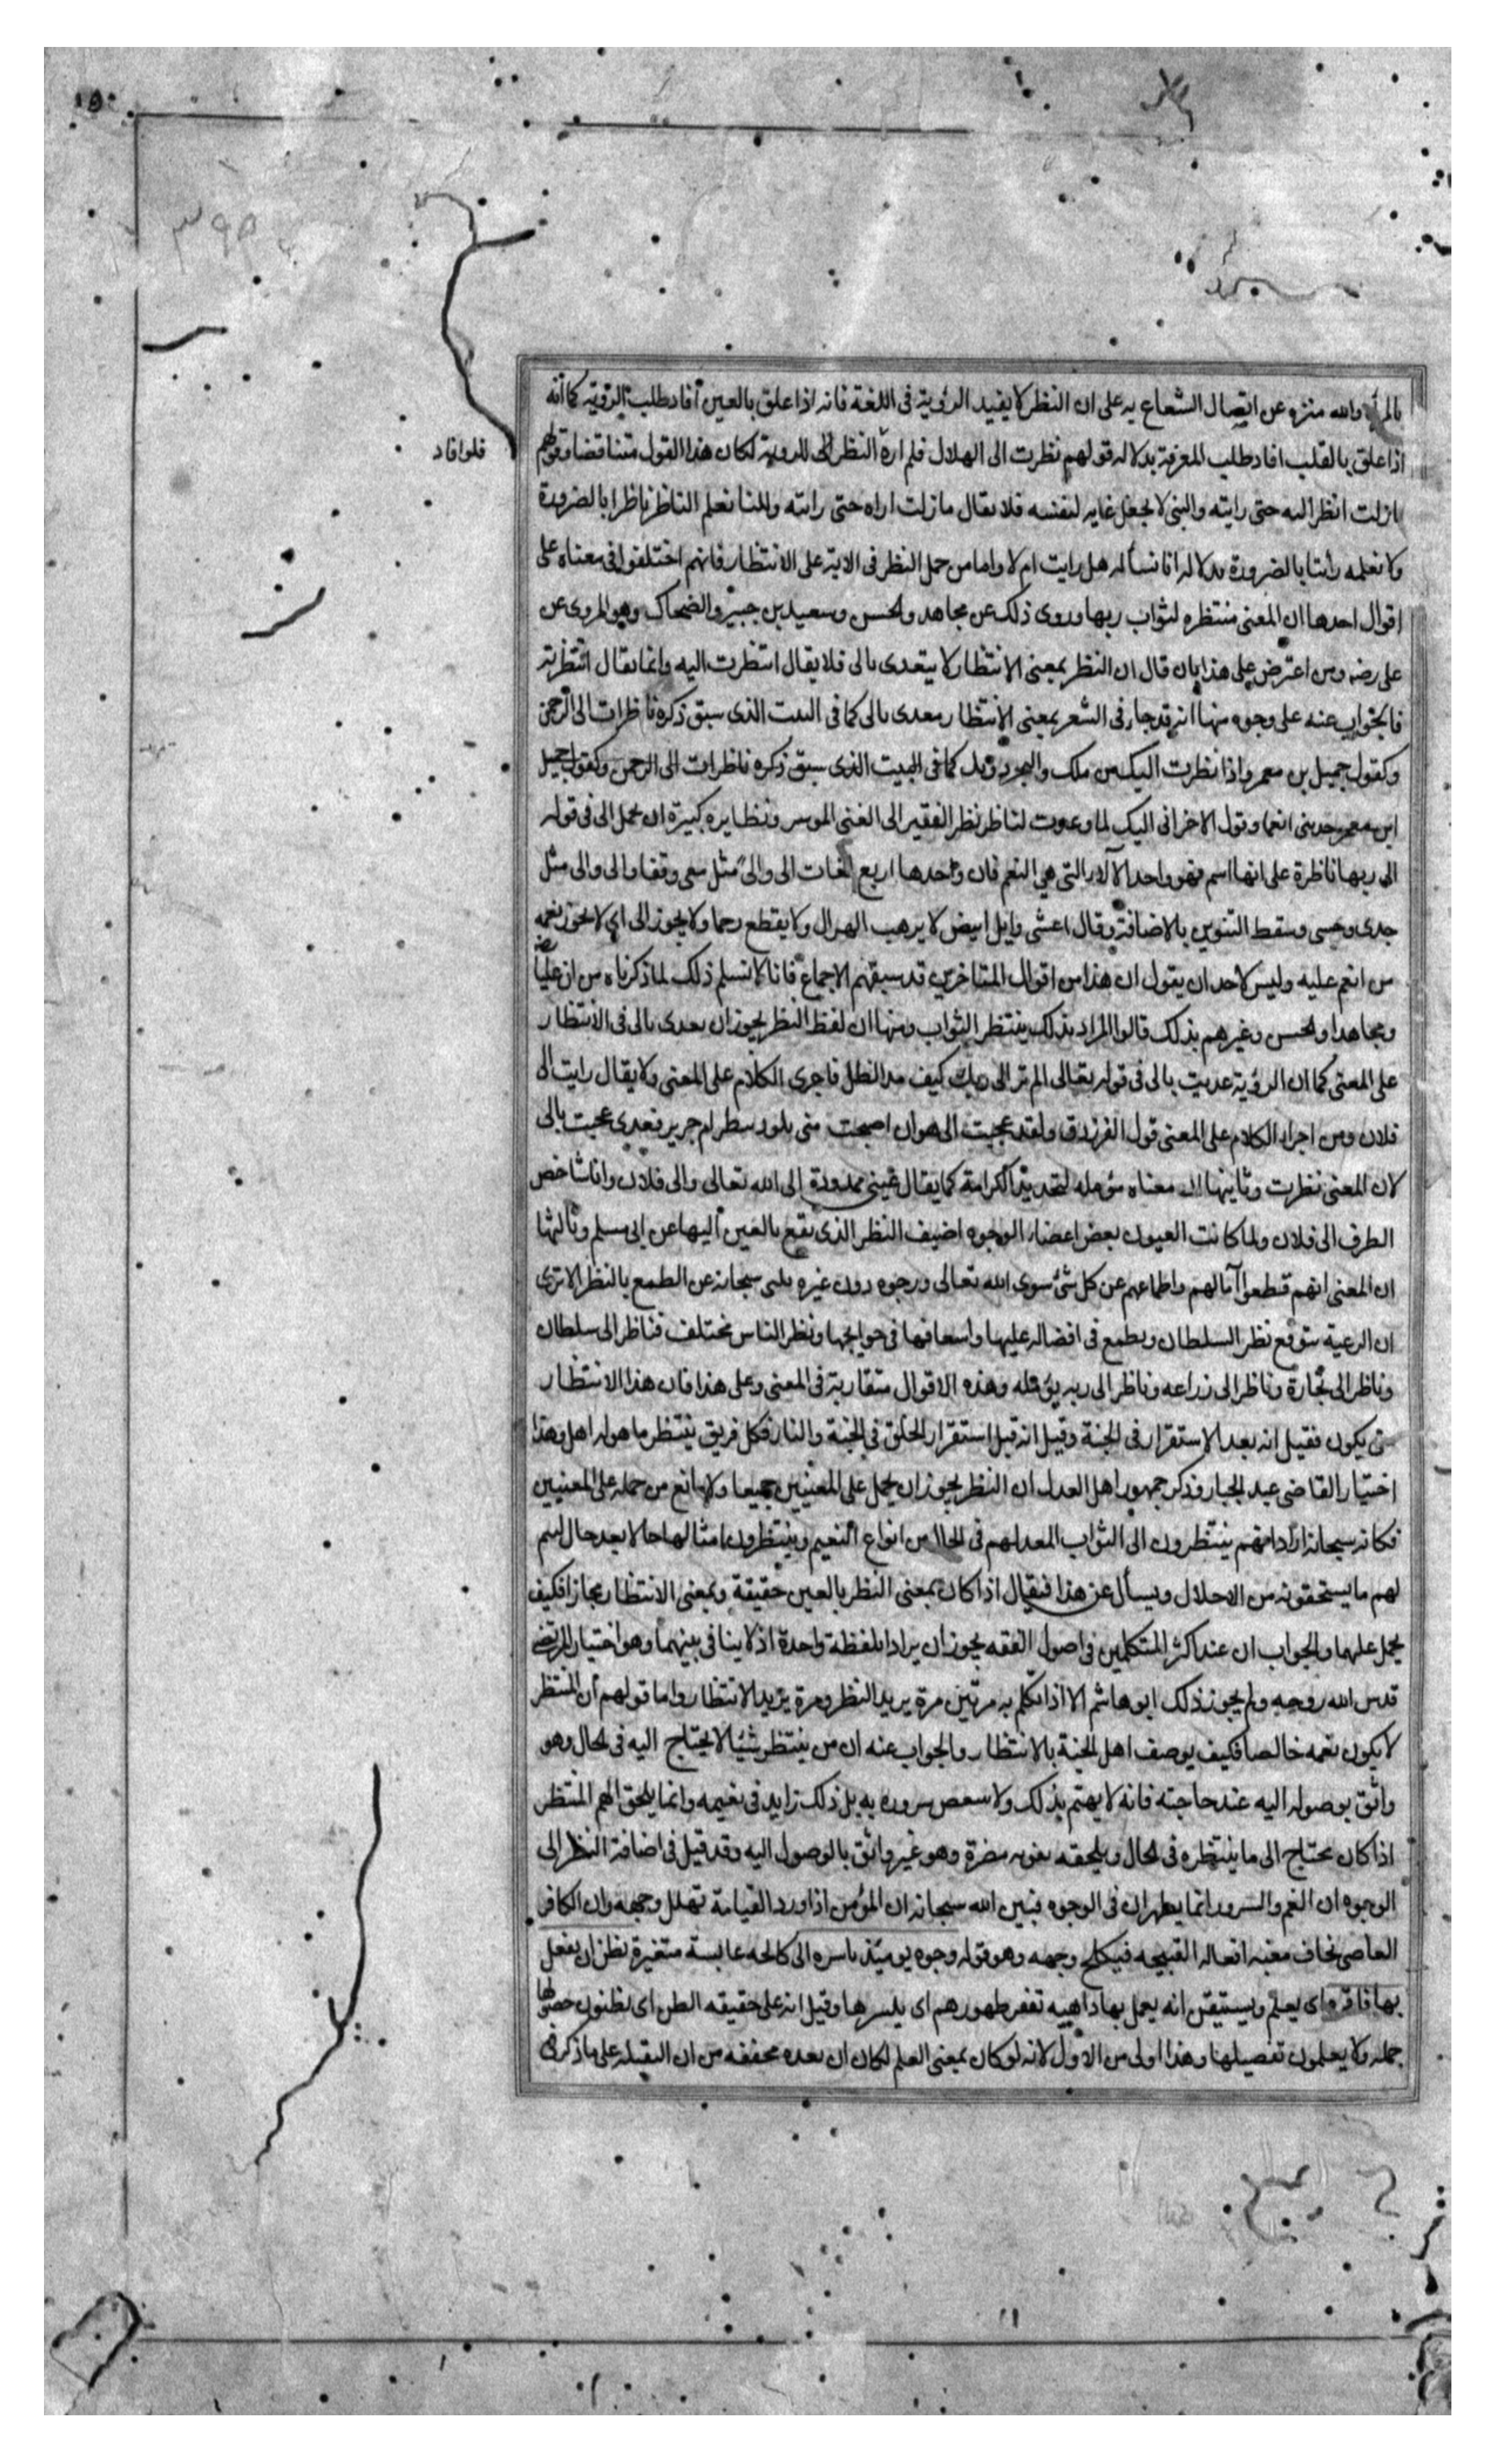 بالمرئي والله منزه عن اتصال الشعاع به على ان النظر لا يفيد الرؤية فى اللغة فانه اذا علق بالعين أفاد طلب الرؤية كما أنه
اذا علق بالقلب افاد طلب المعرفة بدلاله قولهم نظرت الى الهلال فلم اره النظر الى للروية لكان هذا القول متناقضا وقولهم
فلو افاد
مازلت انظر اليه حتى رايته والشى لا يجعل غايه لنفسه فلا يقال مازلت اراه حتى رايته ولاننا نعلم الناظر ناظرا بالضرورة
ولا نعلمه رائيا بالضرورة بدلاله انا نسأله هل رايت ام لا واما من حمل النظر فى الاية على الانتظار فانهم اختلفوا فى معناه على
اقوال احدها ان المعنى منتظره لثواب ربها وروى ذلك عن مجاهد والحسن وسعيد بن جبير والضحاك وهو المروى عن
على رضه ومن اعترض على هذا بان قال ان النظر بمعنى الانتظار لا يتعدى بالى فلا يقال انتظرت اليه وانما يقال انتظرته
فالجواب عنه على وجوه منها انه قد جاء فى الشعر بمعنى الانتظار معدى بالى كما فى البيت الذى سبق ذكره ناظرات الى الرحمن
وكقول جميل بن معمر واذا نظرت اليك من ملك والبحر دونك كما فى البيت الذى سبق ذكره ناظرات الى الرحمن وكقول جميل
ابن معمر جدتنى انعما وقول الاخر انى اليك لما وعدت لناظر نظر الفقير الى الغنى الموسر ونظايره كثيرة ان يحمل الى فى قوله
الى ربها ناظرة على انها اسم فهو واحد الآلاء التى هى النعم فان واحدها اربع لغات الى والى مثل معى وقفا والى والى مثل
جدى وحسى وسقط التنوين بالاضافة وقال اعشى وايل ابيض لا يرهب الهزال ولا يقطع رحما ولا يخون الى اي لا يخون نعمه
من انعم عليه وليس لاحد ان يقول ان هذا من اقوال المتاخرين قد سبقهم الاجماع فانا لا نسلم ذلك لما ذكرناه من ان عليا رضه
ومجاهدا والحسن وغيرهم بذلك قالوا المراد بذلك ينتظر الثواب ومنها ان لفظ النظر يجوز ان يعدى بالى فى الانتظار
على المعنى كما ان الرؤية عديت بالى فى قوله تعالى الم تر الى ربك كيف مد الظل فاجرى الكلام على المعنى ولا يقال رايت الى
فلان ومن اجراء الكلام على المعنى قول الفرزدق ولقد عجبت الى هوازن اصبحت منى يلوذ ببظر ام جرير فعدى عجبت بالى
لان المعنى نظرت وثانيها ان معناه مؤمله لتجديد الكرامة كما يقال عينى ممدودة الى الله تعالى والى فلان وانا شاخص
الطرف الى فلان ولما كانت العيون بعض اعضاء الوجوه اضيف النظر الذى يقع بالعين اليها عن ابى مسلم وثالثها
ان المعنى انهم قطعوا آمالهم واطماعهم عن كل شئ سوى الله تعالى ورجوه دون غيره سبحانه عن الطمع بالنظر الا ترى
ان الرعية تتوقع نظر السلطان ويطمع فى افضاله عليها واسعافها فى حوايجها ونظر الناس مختلف فناظر الى سلطان
وناظر الى تجارة وناظر الى زراعه وناظر الى ربه يؤمله وهذه الاقوال متقاربة فى المعنى وعلى هذا فان هذا الانتظار
متى يكون فقيل انه بعد الاستقرار فى الجنة وقيل انه قبل استقرار الخلق فى الجنة والنار فكل فريق ينتظر ما هو له اهل وهذا
اختيار القاضى عبد الجبار وذكر جمهور اهل العدل ان النظر يجوز ان يحمل على المعنيين جميعا ولا مانع من حمله على المعنيين
فكانه سبحانه اراد انهم ينتظرون الى الثواب المعد لهم فى الحال من انواع النعيم وينتظرون امثالها حالا بعد حال ليتم
لهم ما يستحقونه من الاجلال ويسأل عن هذا فيقال اذا كان بمعنى النظر بالعين حقيقة وبمعنى الانتظار مجازا فكيف
يحمل عليهما والجواب ان عند اكثر المتكلمين فى اصول الفقه يجوز ان يراد بلفظة واحدة اذ لا ينافى بينهما وهو اختيار المرتضى
قدس الله روحه ولم يجوز ذلك ابو هاشم الا اذا تكلم به مرتين مرة يريد النظر ومرة يريد الانتظار واما قولهم أن المنتظر
لا يكون نعمه خالصا فكيف يوصف اهل الجنة بالانتظار والجواب عنه ان من ينتظر شيئا لا يحتاج اليه فى الحال وهو
واثق بوصوله اليه عند حاجته فانه لا يهتم بذلك ولا سعص سروره به بل ذلك زايد فى نعيمه وانما يلحق الهم المنتظر
اذا كان يحتاج الى ما ينتظره فى الحال ويلحقه بفوته مضرة وهو غير واثق بالوصول اليه وقد قيل فى اضافة النظر الى
الوجوه ان الغم والسرور انما يظهران فى الوجوه فبين الله سبحانه ان المؤمن اذا ورد القيامة تهلل وجهه وان الكافر
العاصى يخاف مغبه افعاله القبيحه فيكلح وجهه وهو قوله وجوه يومئذ باسره اى كالحه عابسة متغيرة تظن ان يفعل
بها فاقره اى يعلم ويستيقن انه يعمل بها داهيه تفقر ظهورهم اى يكسرها وقيل انه على حقيقه الظن اى يظنون حصولها
جمله ولا يعلمون تفصيلها وهذا اولى من الاول لانه لو كان بمعنى العلم لكان ان بعده مخففه من ان الثقيله على ما ذكر فى